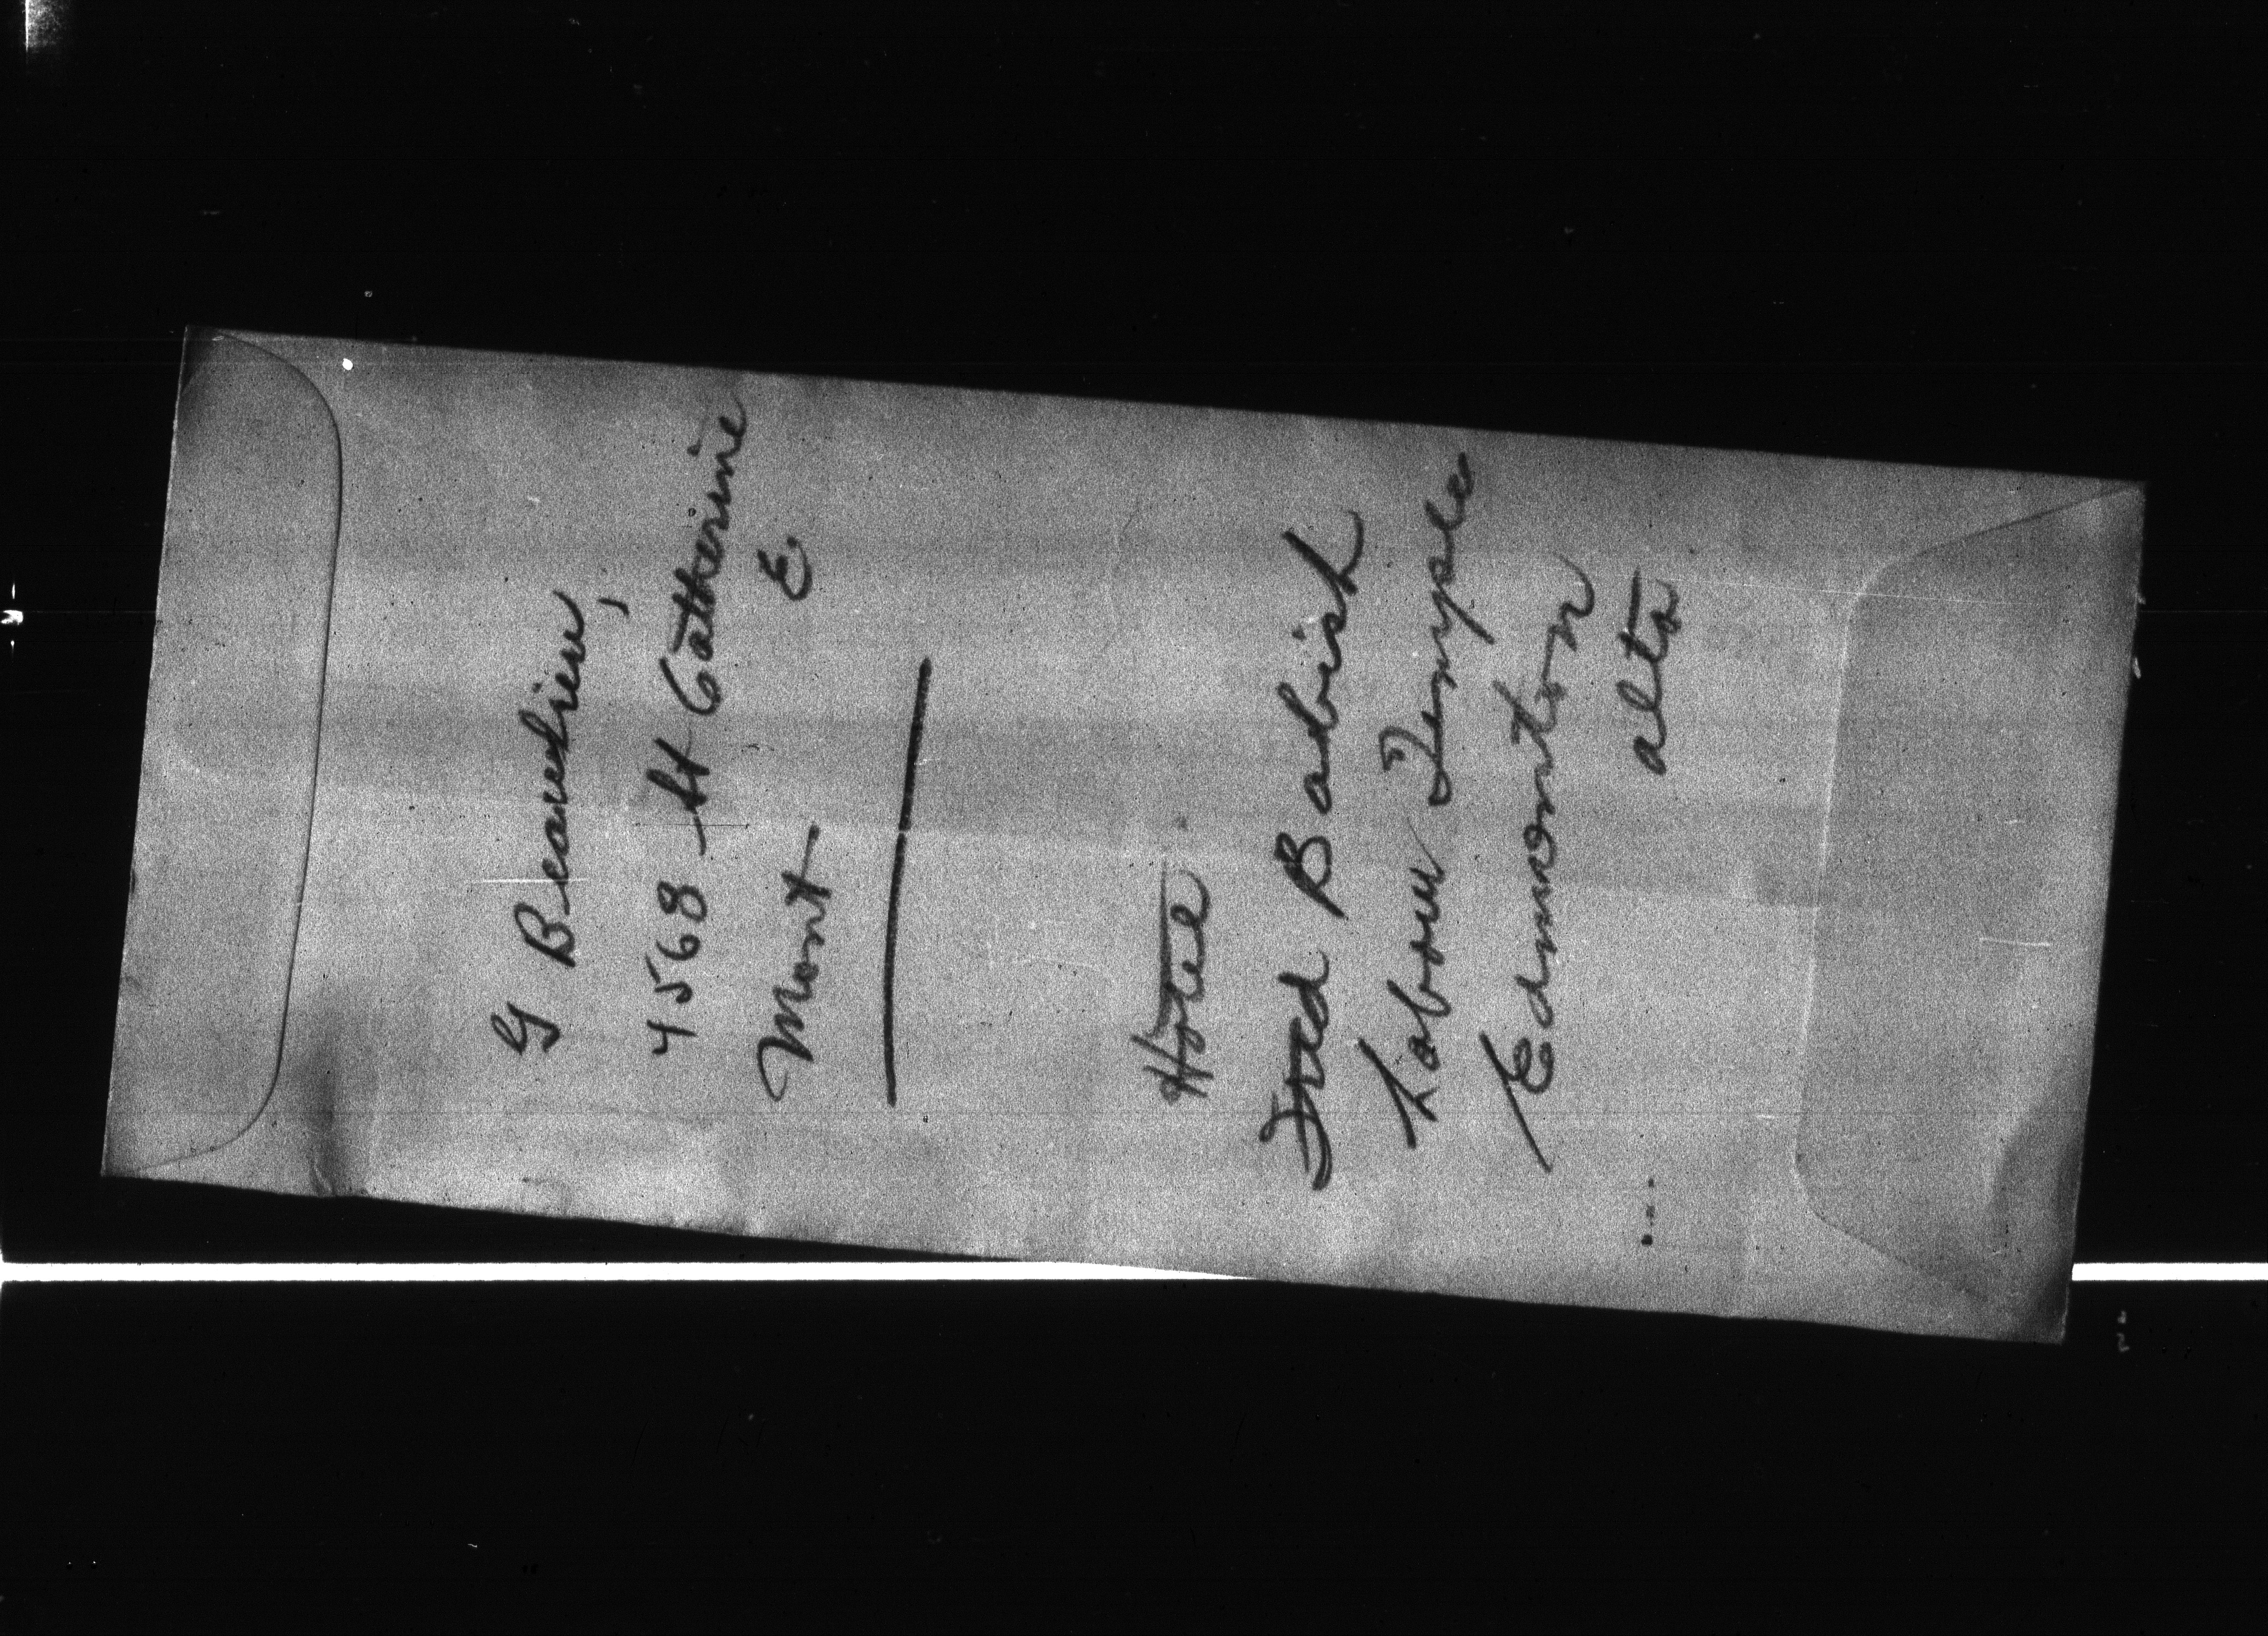 G Beaulieu,
4568 St Catherine
E.
Mont
Hotel
Fred Babish
Labour Temple
Edmonton
alta